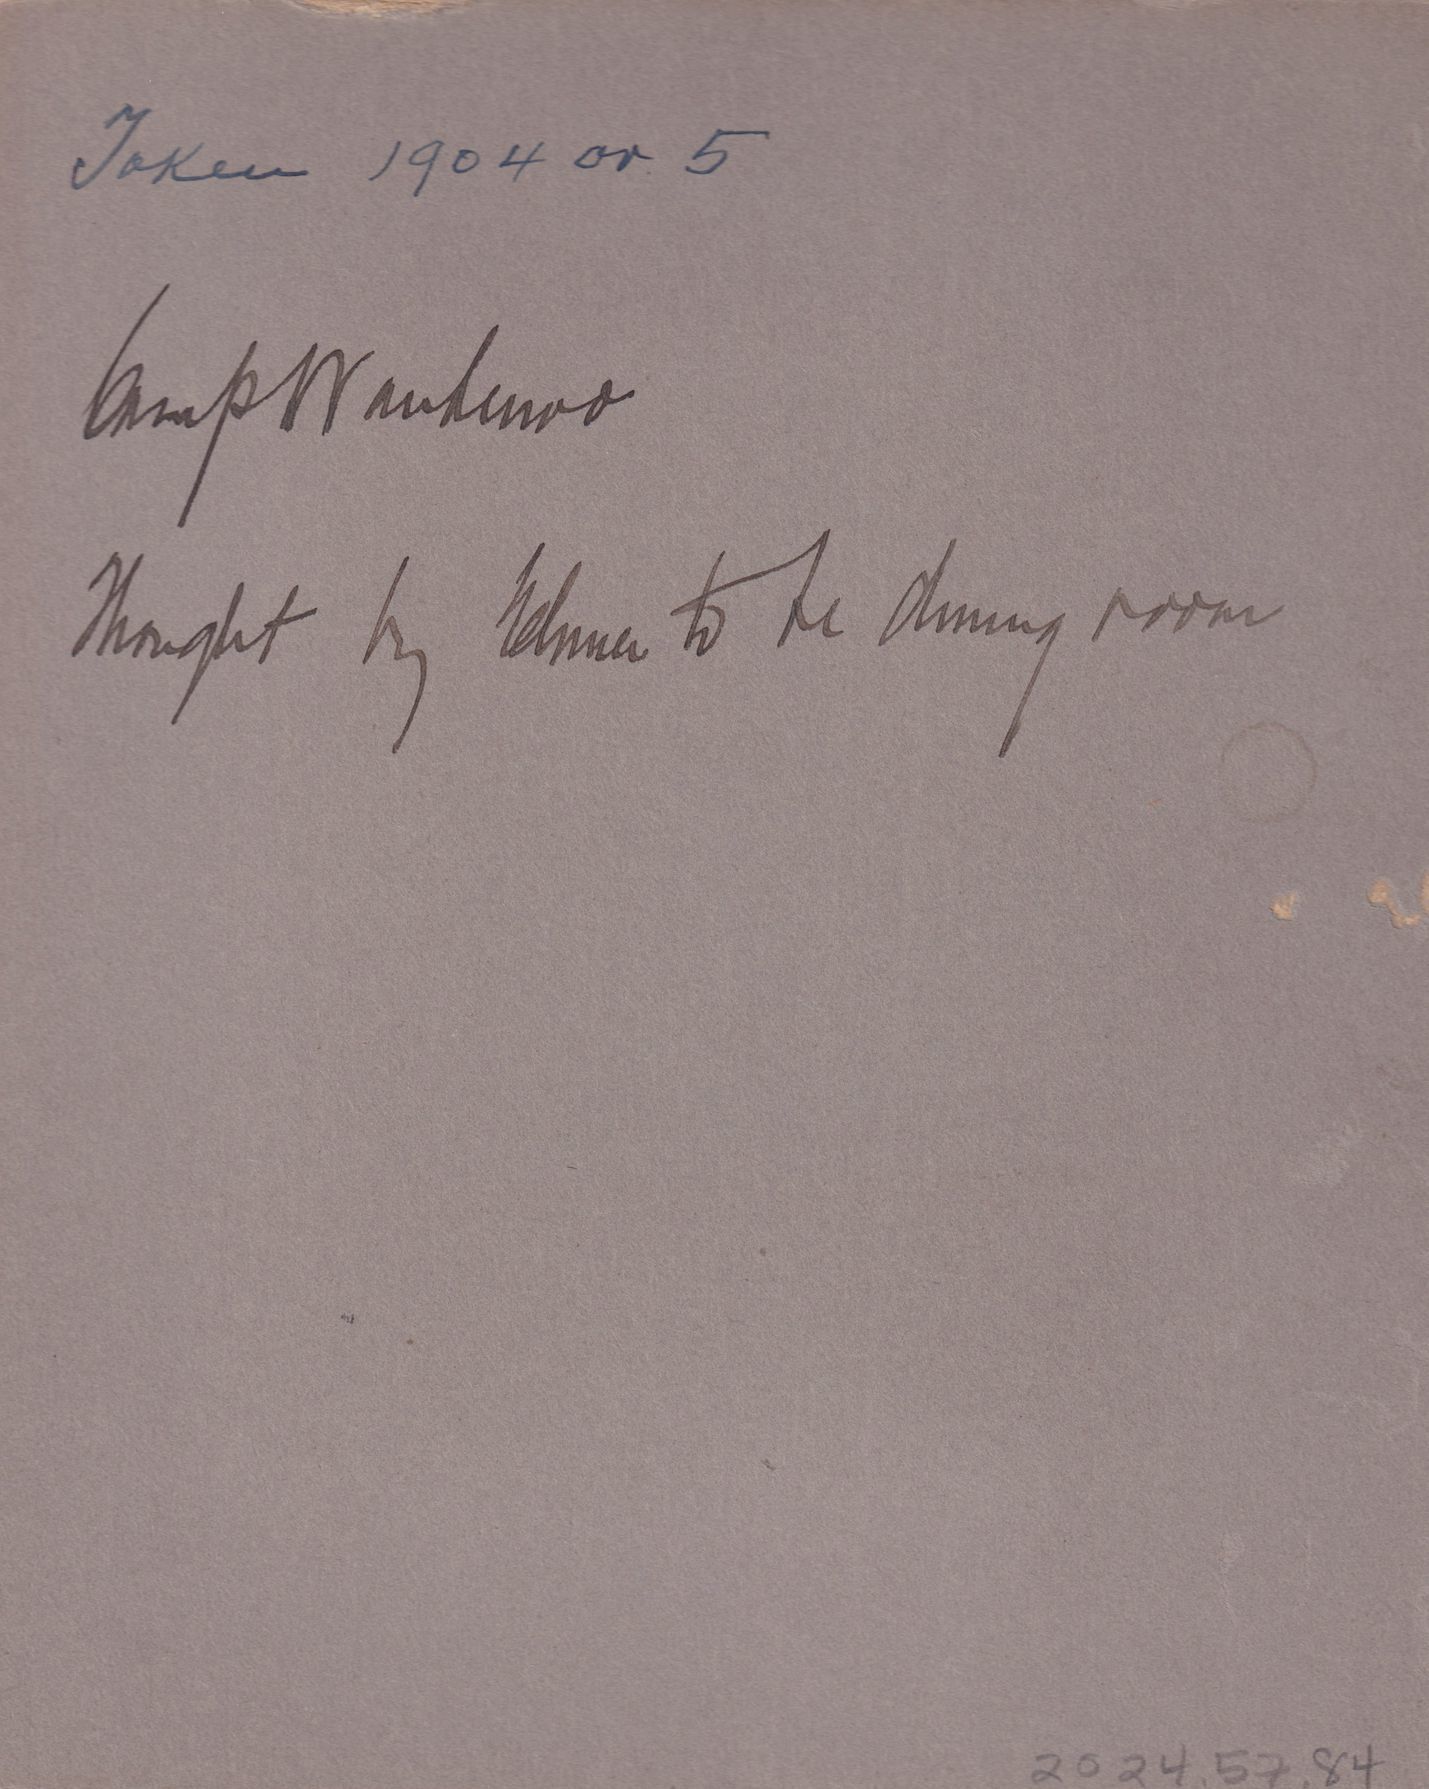 Taken 1904 or 5
Camp
Thought by Elmer to be dining room
2024.57.84